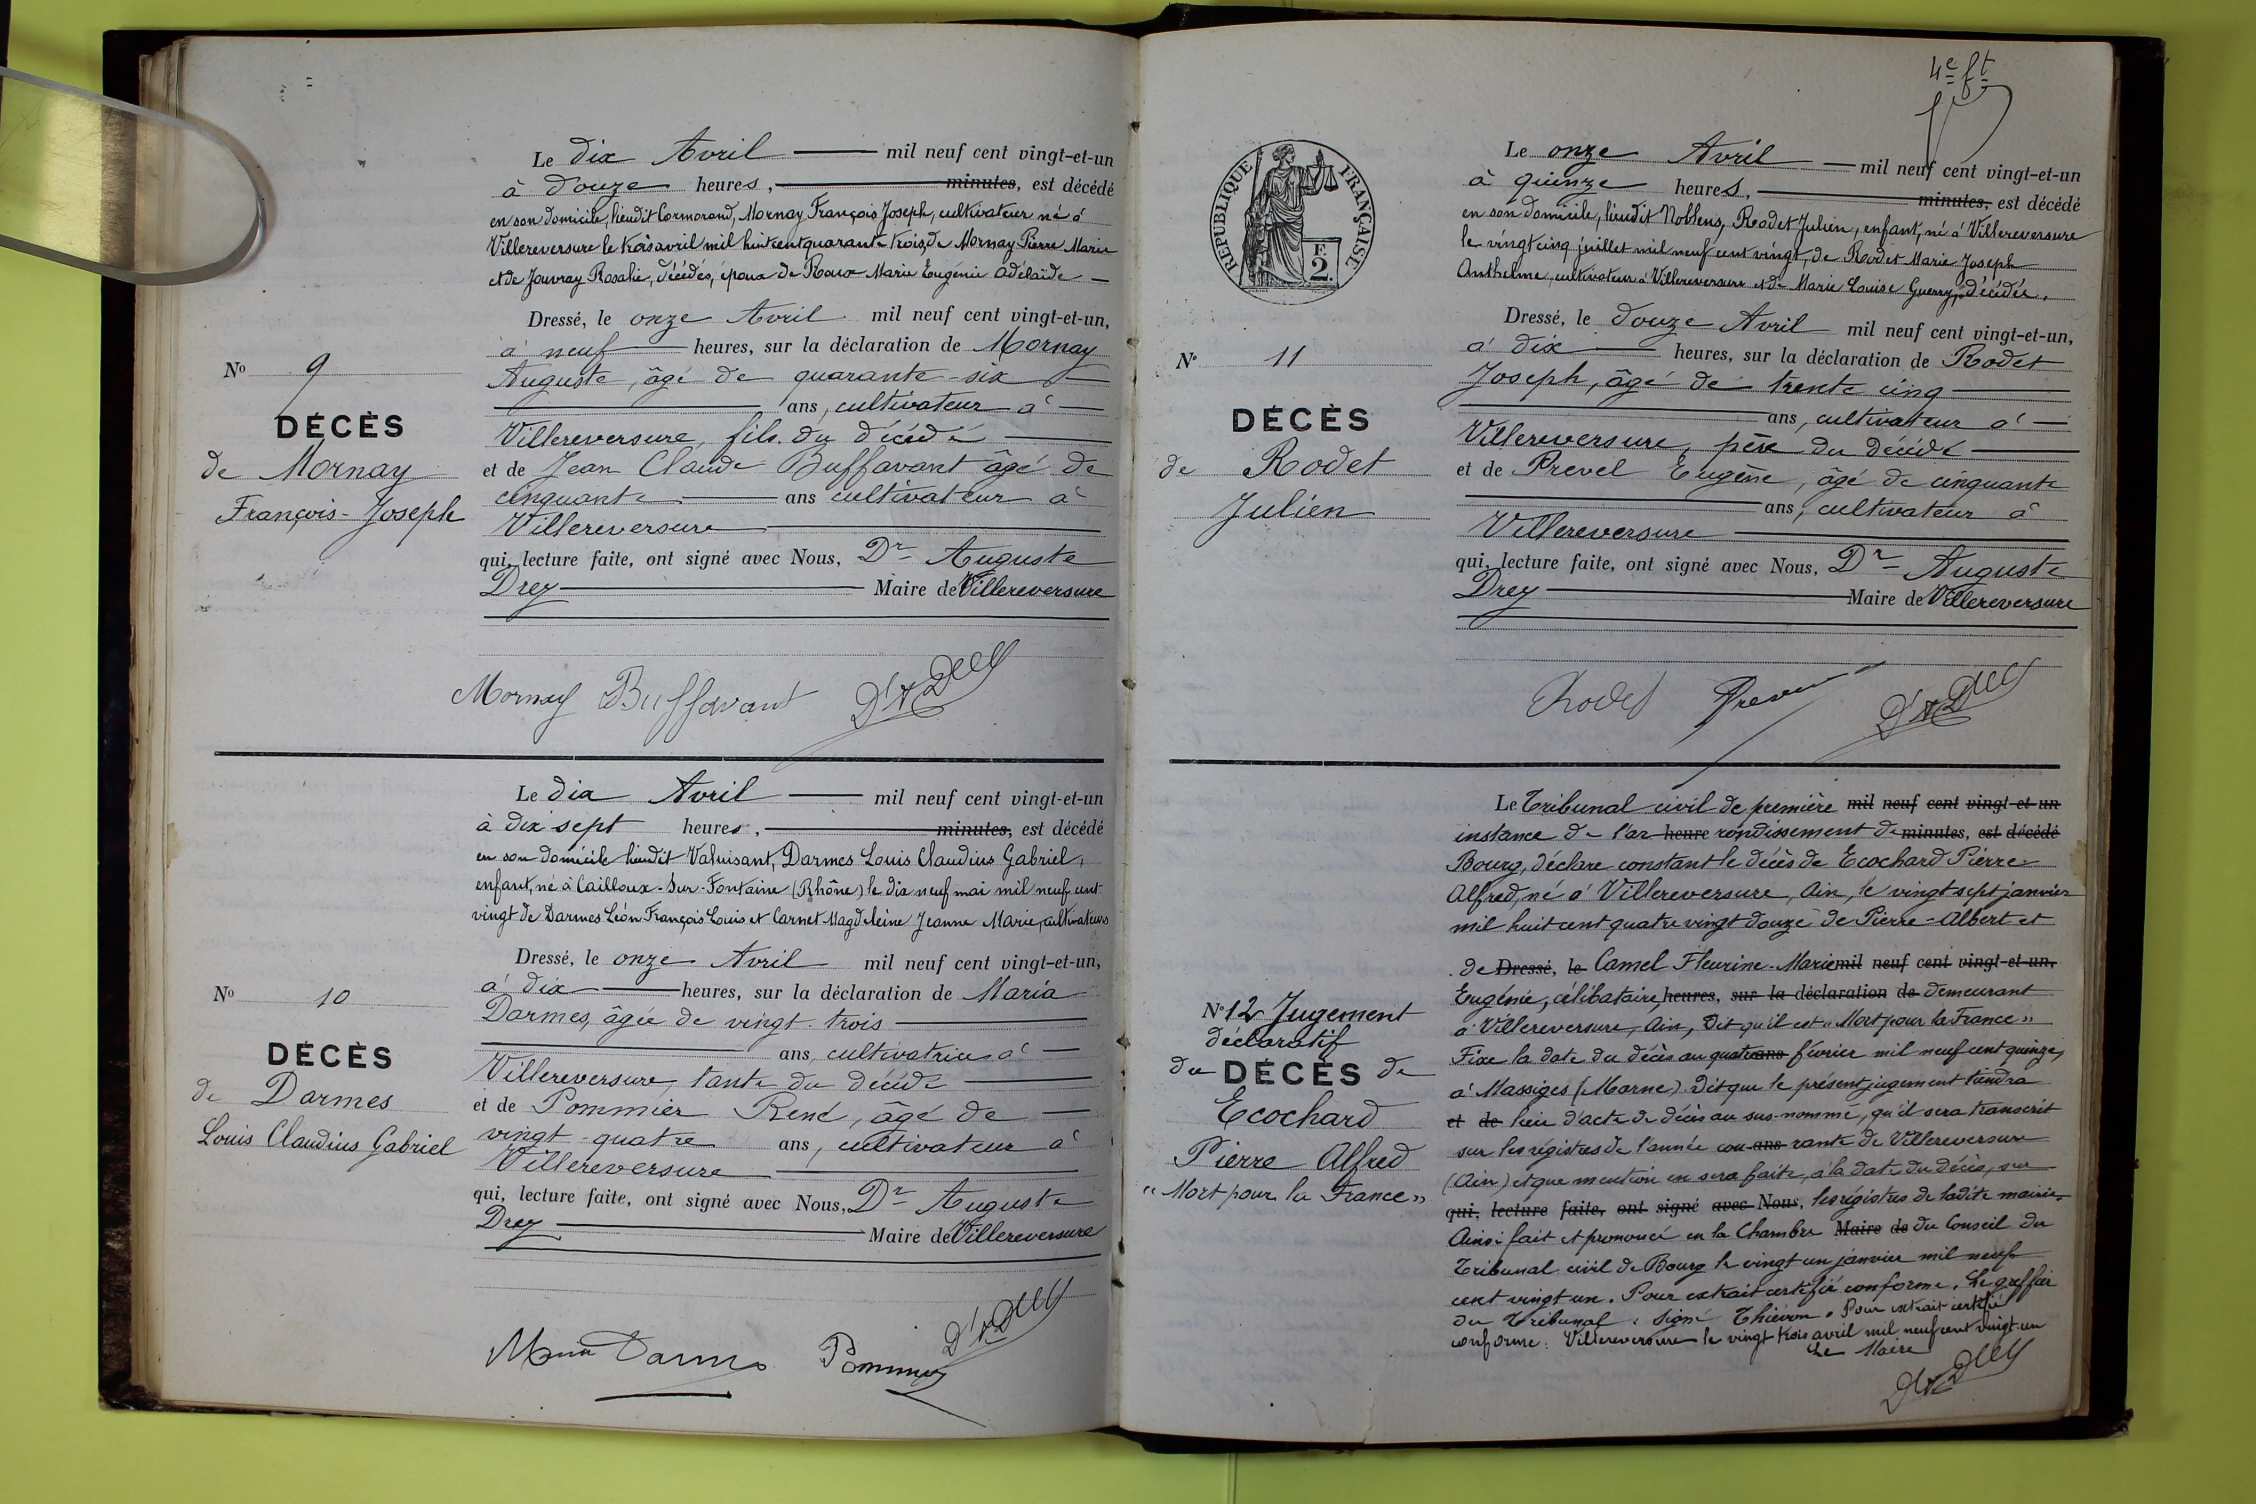 Le dix Avril mil neuf cent vingt-et-un
à douze heures, minutes, est décédé
en son domicile, lieudit Cormorand, Mornay François Joseph, cultivateur né à
Villereversure le trois avril mil huit cent quarante trois, de Mornay Pierre Marie
et de Jouvray Rosalie, décédés, époux de Roux Marie Eugénie Adélaïde
Dressé, le onze Avril mil neuf cent vingt-et-un,
à neuf heures, sur la déclaration de Mornay
No 9
Auguste, âgé de quarante-six
ans, cultivateur à
DÉCÈS
Villereversure, fils du décédé
de Mornay
et de Jean Claude Buffavant âgé de
cinquante ans cultivateur à
François-Joseph
Villereversure
qui, lecture faite, ont signé avec Nous, Dr Auguste
Drey Maire de Villereversure
Mornay Buffavant Dr A Drey
Le dix Avril mil neuf cent vingt-et-un
à dix sept heures, minutes, est décédé
en son domicile lieudit Valuisant, Darmes Louis Claudius Gabriel,
enfant, né à Cailloux-Sur-Fontaine (Rhône) le dix neuf mai mil neuf cent
vingt de Darmes Léon François Louis et Carnet Magdeleine Jeanne Marie, cultivateurs
Dressé, le onze Avril mil neuf cent vingt-et-un,
à dix heures, sur la déclaration de Maria
No 10
Darmes, âgée de vingt-trois
ans, cultivatrice à
DÉCÈS
Villereversure, tante du décédé
de Darmes
et de Pommier René, âgé de
Louis Claudius Gabriel
vingt-quatre ans, cultivateur à
Villereversure
qui, lecture faite, ont signé avec Nous, Dr Auguste
Drey Maire de Villereversure
Maria Darmes Pommier Dr A Drey
4e ft
RÉPUBLIQUE FRANÇAISE
F.
2.
Le onze Avril mil neuf cent vingt-et-un
à quinze heures, minutes, est décédé
en son domicile, lieudit Noblens, Rodet Julien, enfant, né à Villereversure
le vingt cinq juillet mil neuf cent vingt, de Rodet Marie Joseph
Anthelme, cultivateur à Villereversure et de Marie Louise Guerry, décédée.
Dressé, le douze Avril mil neuf cent vingt-et-un,
à dix heures, sur la déclaration de Rodet
No 11
Joseph, âgé de trente cinq
ans, cultivateur à
DÉCÈS
Villereversure, père du décédé
de Rodet
et de Prevel Eugène, âgé de cinquante
ans, cultivateur à
Julien
Villereversure
qui, lecture faite, ont signé avec Nous, Dr Auguste
Drey Maire de Villereversure
Rodet Prevel Dr A Drey
Le Tribunal civil de première mil neuf cent vingt-et-un
instance de l'ar heure rondissement de minutes, est décédé
Bourg, déclare constant le décès de Ecochard Pierre
Alfred, né à Villereversure, Ain, le vingt sept janvier
mil huit cent quatre vingt douze de Pierre-Albert et
de Dressé, le Camel Fleurine-Marie mil neuf cent vingt-et-un,
Eugénie, célibataire, heures, sur la déclaration de demeurant
No 12 Jugement
à Villereversure, Ain, Dit qu'il est "Mort pour la France"
déclaratif
Fixe la date du décès au quatre ans février mil neuf cent quinze,
du DÉCÈS de
à Massiges (Marne). Dit que le présent jugement tiendra
Ecochard
et de lieu d'acte de décès au sus-nommé, qu'il sera transcrit
sur les régistres de l'année cou ans rante de Villereversure
Pierre Alfred
(Ain) et que mention en sera faite, à la date du décès, sur
"Mort pour la France"
qui, lecture faite, ont signé avec Nous, les régistres de ladite mairie.
Ainsi fait et prononcé en la Chambre Maire de du Conseil du
Tribunal civil de Bourg le vingt un janvier mil neuf
cent vingt un. Pour extrait certifié conforme. Le greffier
du Tribunal. Signé Thiévon. Pour extrait certifié
conforme. Villereversure le vingt trois avril mil neuf cent vingt-un
Le Maire
Dr A Drey